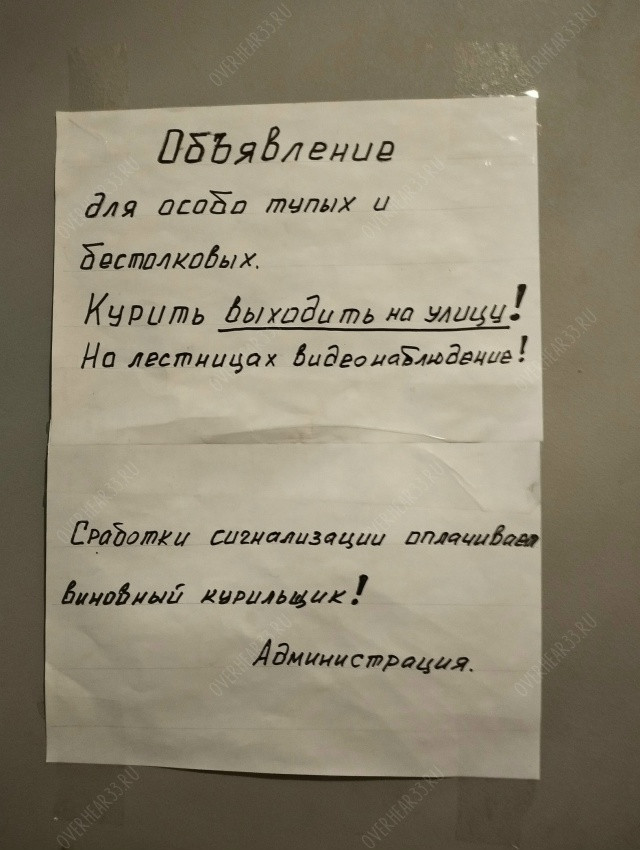 Объявление
для особо тупых и
бестолковых.
Курить выходить на улицу!
На лестницах видеонаблюдение!
Сработки сигнализации оплачивает
виновный курильщик!
Администрация.
OVERHEAR33.RU